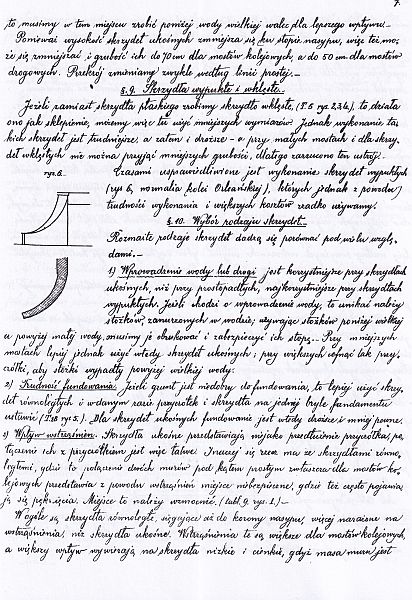 7.
to musimy w tem miejscu zrobić poniżej wody wielkiej walec dla lepszego wpływu.-
Ponieważ wysokość skrzydeł ukośnych zmniejsza się ku stopie nasypu, więc też mo-
że się zmniejszać i grubość ich do 70 cm dla mostów kolejowych, a do 50 cm dla mostów
drogowych. Przekrój zmieniamy zwykle według linii prostej.-
§.9. Skrzydła wypukłe i wklęsłe.-
Jeżeli zamiast skrzydła płaskiego zrobimy skrzydło wklęsłe, (T.8 ryc. 2,3,4.), to działa
ono jak sklepienie, możemy więc tu użyć mniejszych wymiarów. Jednak wykonanie ta-
kich skrzydeł jest trudniejsze, a zatem i droższe - a przy małych mostach i dla skrzy-
deł wklęsłych nie można przyjąć mniejszych grubości, dlatego zarzucono ten ustrój.-
ryc. 6.
Czasami usprawiedliwione jest wykonanie skrzydeł wypukłych
(ryc 6, normalia kolei Orleańskiej), których jednak z powodu
trudności wykonania i większych kosztów rzadko używamy.
§.10. Wybór rodzaju skrzydeł.-
Rozmaite rodzaje skrzydeł dadzą się porównać pod wielu wzglę-
dami.-
1) Wprowadzenie wody lub drogi jest korzystniejsze przy skrzydłach
ukośnych, niż przy prostopadłych, najkorzystniejsze przy skrzydłach
wypukłych. Jeżeli chodzi o wprowadzenie wody, to unikać należy
stożków, zanurzonych w wodzie; używając stożków poniżej wielkiej
a powyżej małej wody, musimy je obrukować i zabezpieczyć ich stopę.- Przy mniejszych
mostach lepiej jednak użyć wtedy skrzydeł ukośnych; przy większych cofnąć tak przy-
czółki, aby stożki wypadły powyżej wielkiej wody.
2) Trudność fundowania. Jeżeli grunt jest niedobry do fundowania, to lepiej użyć skrzy-
deł równoległych i w danym razie przyczółek i skrzydła na jednej bryle fundamentu
ustawić (T.8 ryc 5.). Dla skrzydeł ukośnych fundowanie jest wtedy droższe i mniej pewne.
3) Wpływ wstrząśnień. Skrzydła ukośne przedstawiają niejako przedłużenie przyczółka, po-
łączenie ich z przyczółkiem jest więc łatwe. Inaczej się rzecz ma ze skrzydłami równo-
ległemi, gdzie to połączenie dwóch murów pod kątem prostym zwłaszcza dla mostów ko-
lejowych przedstawia z powodu wstrząśnień miejsce niebezpieczne, gdzie też często pojawia-
ją się pęknięcia. Miejsce to należy wzmocnić. (tabl. 9. ryc. 1.)-
W ogóle są skrzydła równoległe, sięgające aż do korony nasypu, więcej narażone na
wstrząśnienia, niż skrzydła ukośne. Wstrząśnienia te są większe dla mostów kolejowych,
a większy wpływ wywierają na skrzydła nizkie i cienkie, gdyż masa muru jest